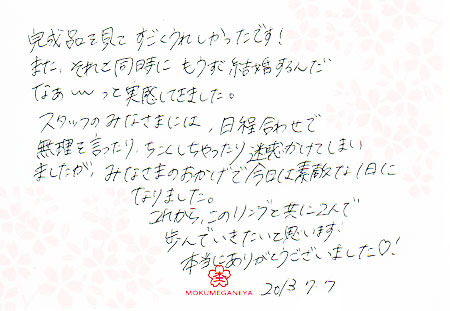 完成品を見て すごくうれしかったです!
また、それと同時に もうすぐ結婚するんだ
なぁ〜 って実感してきました。
スタッフのみなさまには、日程合わせで
無理を言ったり、ちこくしちゃったり 迷惑かけてしまい
ましたが、みなさまのおかげで今日は素敵な1日に
なりました。
これから、このリングと共に2人で
歩んでいきたいと思います!
本当にありがとうございました♡!
MOKUMEGANEYA
2013 7.7